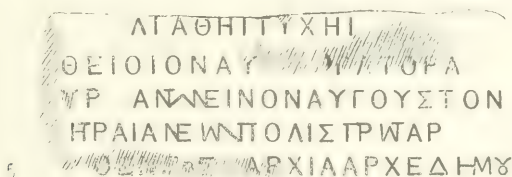 ΑΓΑΘΗΙΤΥΧΗΙ
ΘΕΙΟΙΟΝΑΥ ΤΟΡΑ
ΥΡ ΑΝΤΩΝΕΙΝΟΝΑΥΓΟΥΣΤΟΝ
ΗΤΡΑΙΑΝΕΩΝΠΟΛΙΣΠΡΩΤΑΡ
ΑΡΧΙΑΑΡΧΕΔΗΜȢ